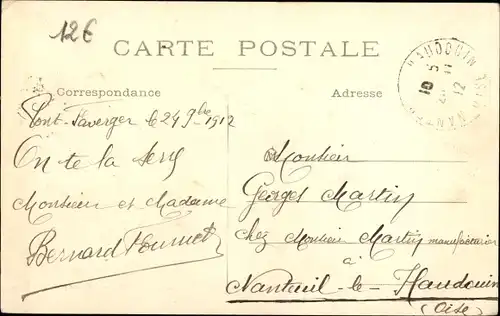 12€
CARTE POSTALE
Correspondance
Adresse
Pont-Faverger le 24 9bre 1912
On te la serre
Monsieur et Madame
Bernard Fournet
NANTEUIL HAUDOUIN
10
12
Monsieur
Georges Martin
chez Monsieur Martin manufacturier
à
Nanteuil-le-Haudouin
(Oise)